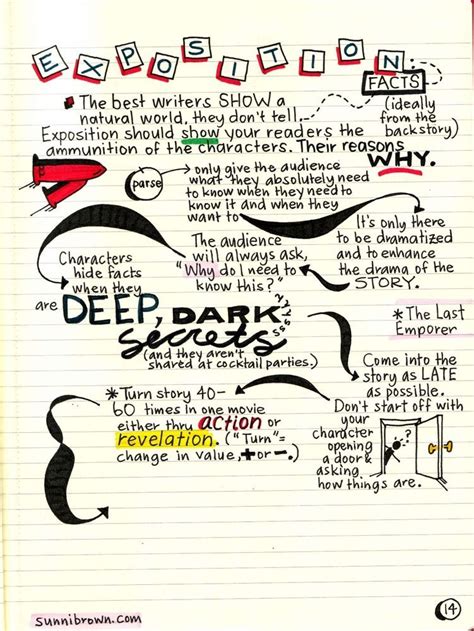 EXPOSITION
FACTS
The best writers SHOW a
natural world, they don't tell.
(ideally
from the
backstory)
Exposition should show your readers the
ammunition of the characters. Their reasons
WHY.
parse
only give the audience
what they absolutely need
to know when they need to
know it and when they
want to
It's only there
to be dramatized
and to enhance
the drama of the
STORY.
The audience
will always ask,
"Why do I need to
know this?"
Characters
hide facts
when they
are DEEP, DARK
secrets
???
sss
(and they aren't
shared at cocktail parties.)
*The Last
Emporer
Come into the
story as LATE
as possible.
Don't start off with
your
character
opening
a door &
asking
how things are.
?
*Turn story 40-
60 times in one movie
either thru action or
revelation. ("Turn"=
change in value, + or -.)
sunnibrown.com
14